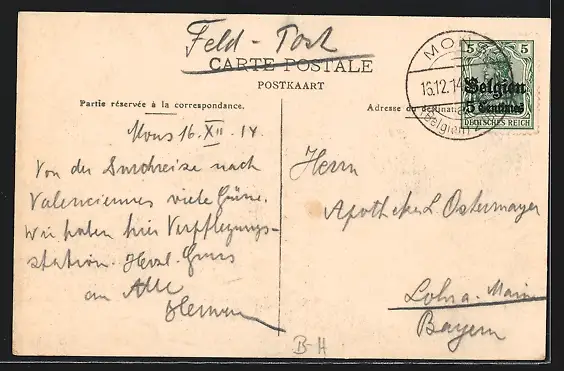 Feld-Post
CARTE POSTALE
POSTKAART
Partie réservée à la correspondance.
Adresse du destina
MONS
16.12.14
(Belgien) 2
5 5
Belgien
5 Centimes
DEUTSCHES REICH
Mons 16. XII. 14
Von der Durchreise nach
Valenciennes viele Grüsse.
Wir haben hier Verpflegungs-
station. Herzl. Gruss
an Alle
Herrn
Apotheker L. Ostermayer
Lohr a. Main
Bayern
B-H